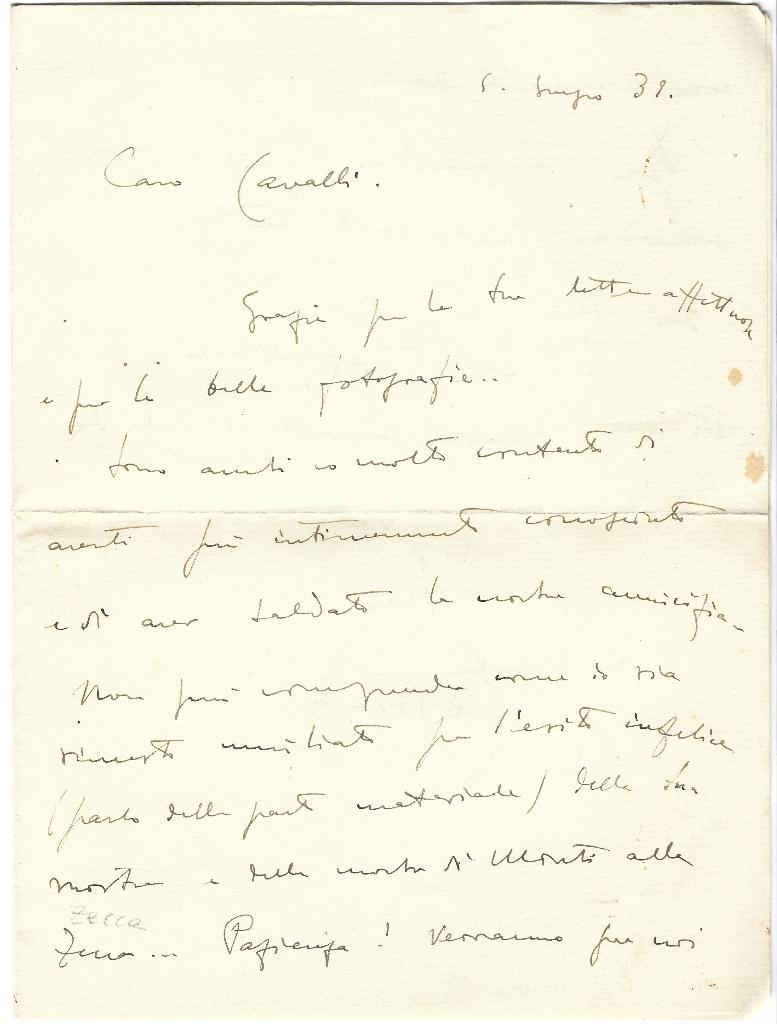 5. Giugno 39.
Caro Cavalli.
Grazie per la tua lettera affettuosa
e per le belle fotografie..
Sono anch'io molto contento di
averti più intimamente conosciuto
e di aver saldato la nostra amicizia.
Non puoi comprendere come io sia
rimasto umiliato per l'esito infelice
(parlo della parte materiale) della tua
mostra e della mostra di Monti alla
Zecca
Zecca... Pazienza! Verranno per noi